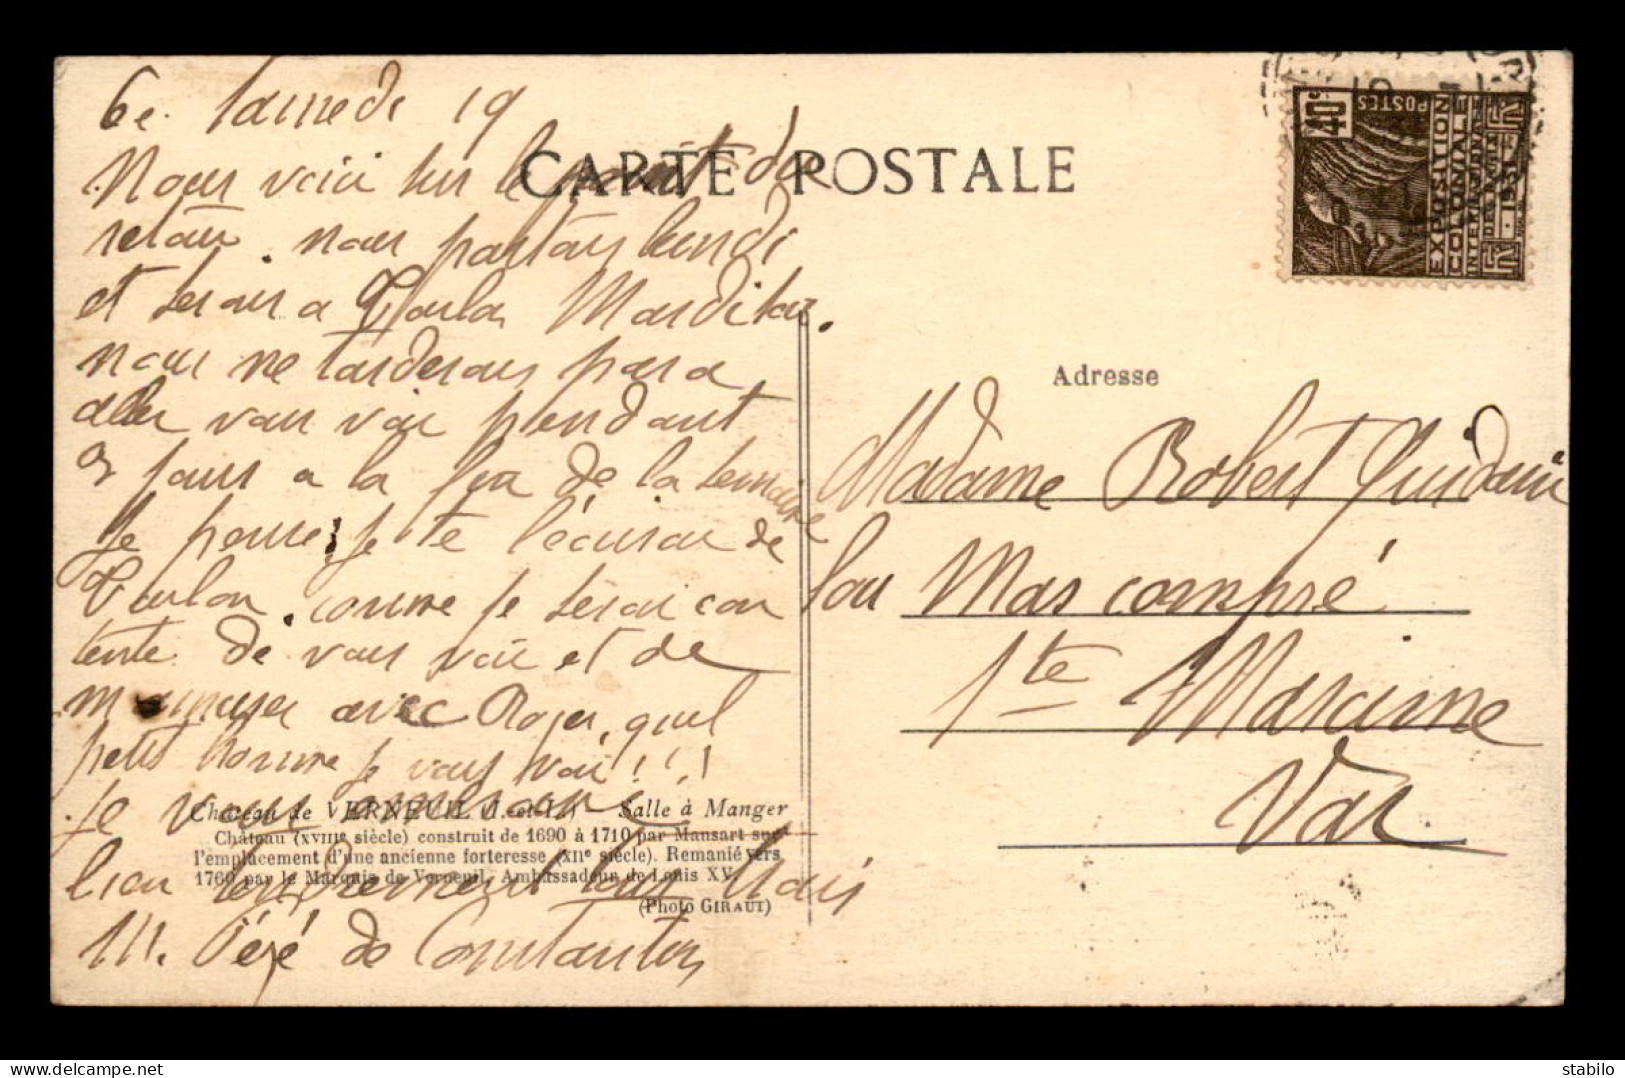 Ce Samedi 19
Nous voici sur le point du
retour. nous partons lundi
et serons a Toulon Mardi soir.
nous ne tarderons pas a
aller vous voir pendant
jours a la fin de la semaine
je pense, je te l'écrirai de
Toulon. comme je serai con
tente de vous voir et de
m'amuser avec Roger, quel
petit homme je vais voir!!!
je vous embrasse
bien tendrement tous trois
!!!. Péré de Constantin
CARTE POSTALE
40c POSTES
EXPOSITION
COLONIALE
INTERNATIONALE
DE PARIS
RF · 1931 · RF
Adresse
Madame Robert Guidoni
Lou Mas compré
Ste Maxime
Var
Château de VERNEUIL (I.-et-L.) Salle à Manger
Château (XVIIIe siècle) construit de 1690 à 1710 par Mansart sur
l'emplacement d'une ancienne forteresse (XIIe siècle). Remanié vers
1760 par le Marquis de Verneuil, Ambassadeur de Louis XV.
(Photo GIRAUT)
stabilo
delcampe.net